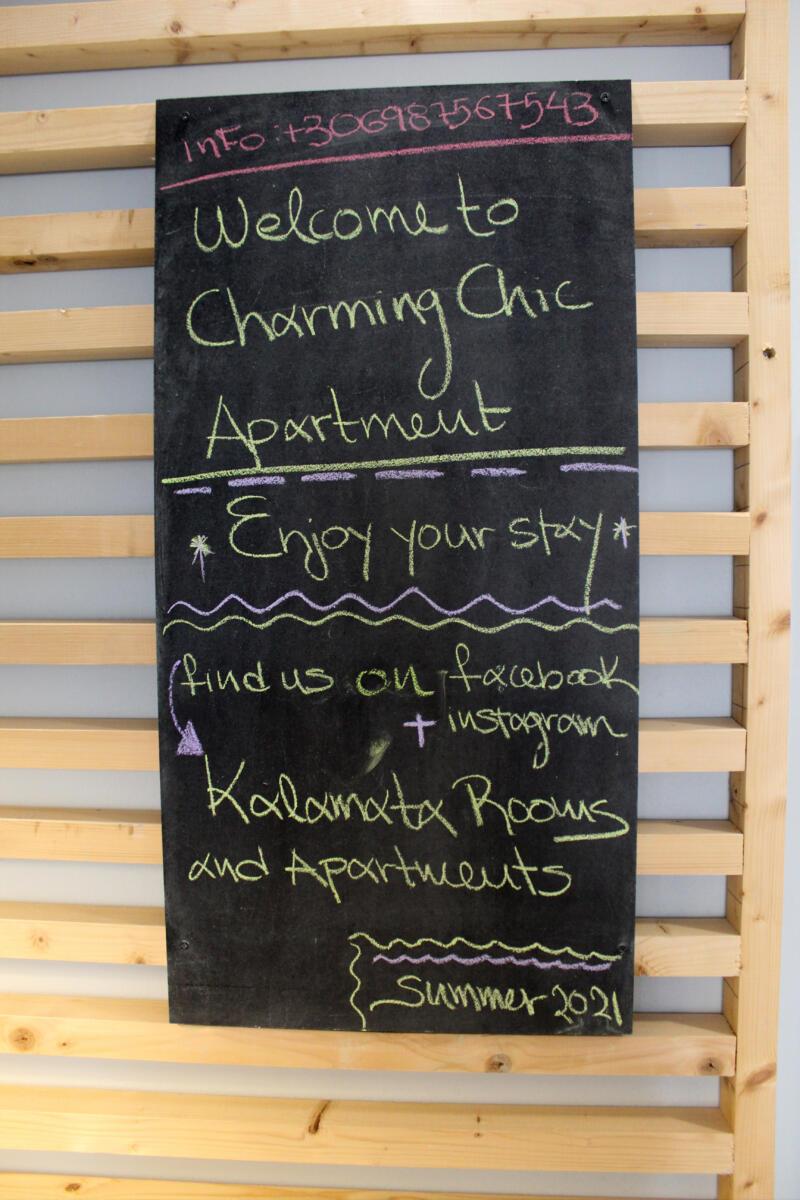 info:+306987567543
Welcome to
Charming Chic
Apartment
Enjoy your stay
find us on facebook
+ instagram
Kalamata Rooms
and Apartments
Summer 2021